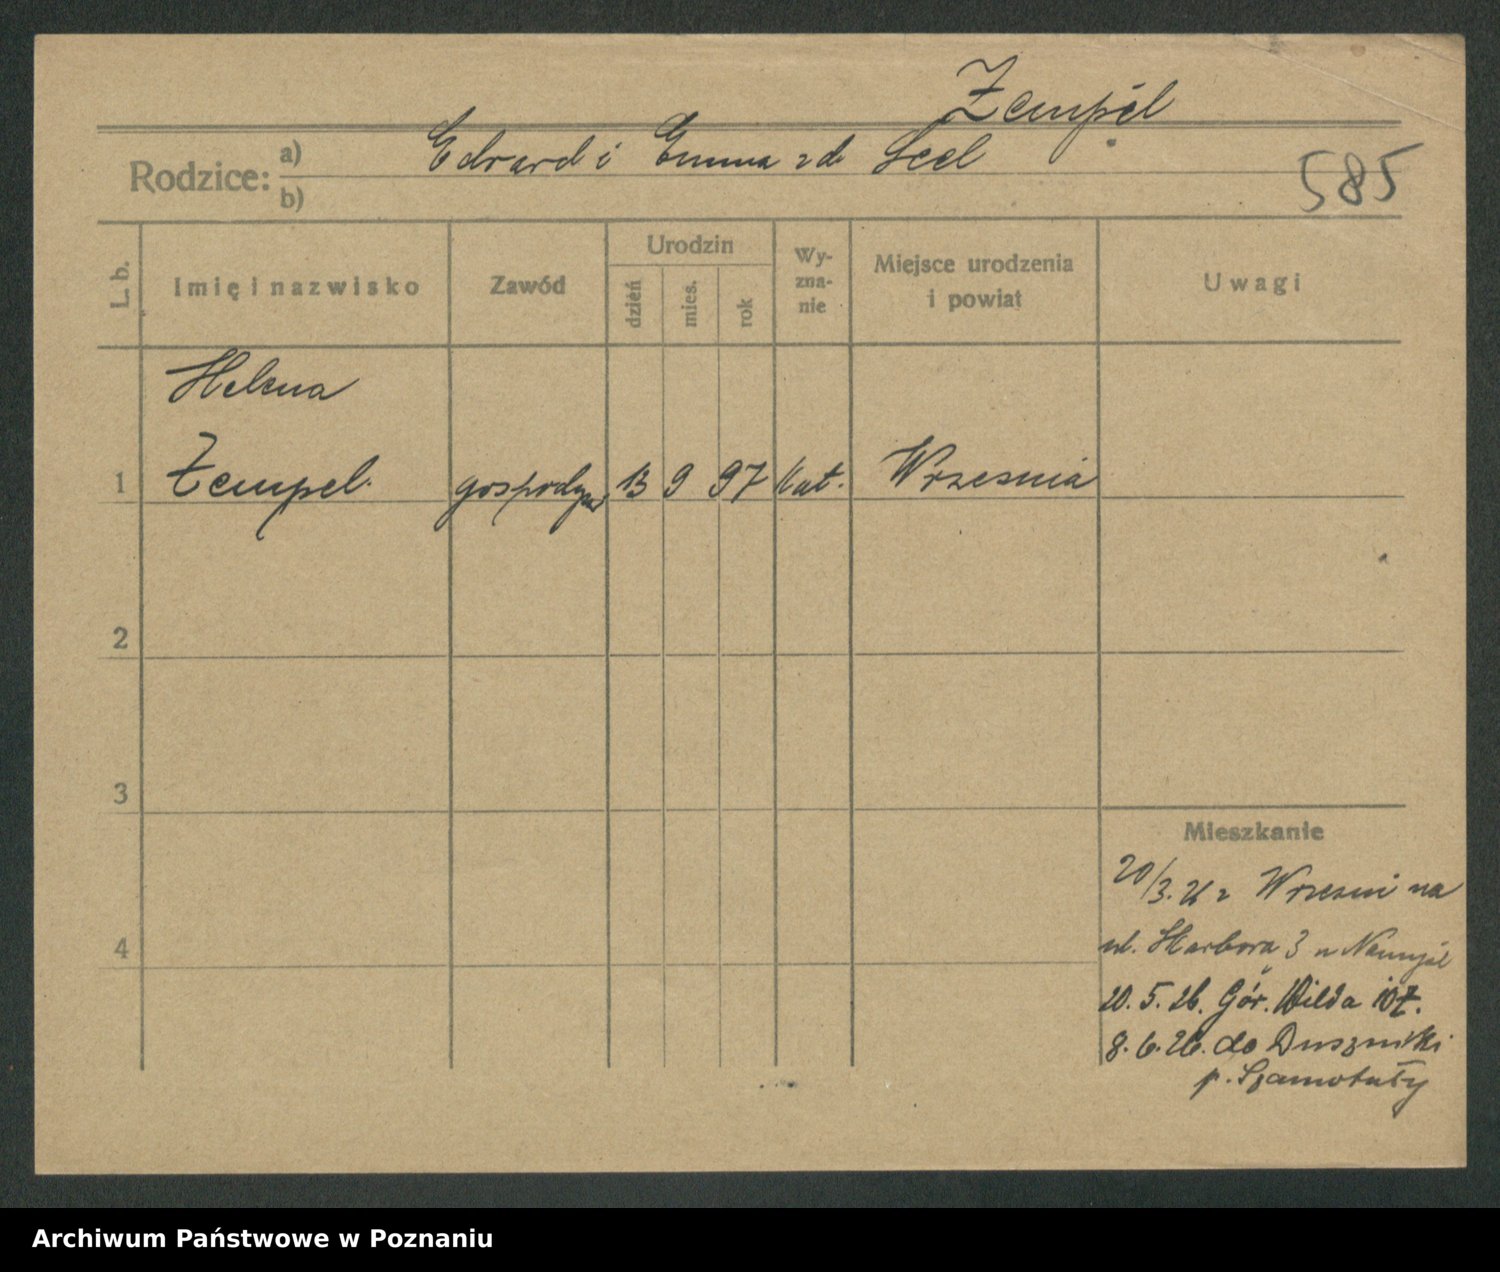 Żempel
Rodzice:
a)
Edward i Emma z d. Seel
b)
585
L. b.
Imię i nazwisko
Zawód
Urodzin
dzień
mies.
rok
Wy-
zna-
nie
Miejsce urodzenia
i powiat
Uwagi
Helena
1 Żempel. gospodyni 13 9 97 kat. Wrzesnia
2
3
4
Mieszkanie
20/3. 26 z Wrzesni na
ul. Harbora 3 u
20. 5. 26. Gór. Wilda 107.
8. 6. 26. do Duszniki
p. Szamotuły
Archiwum Państwowe w Poznaniu